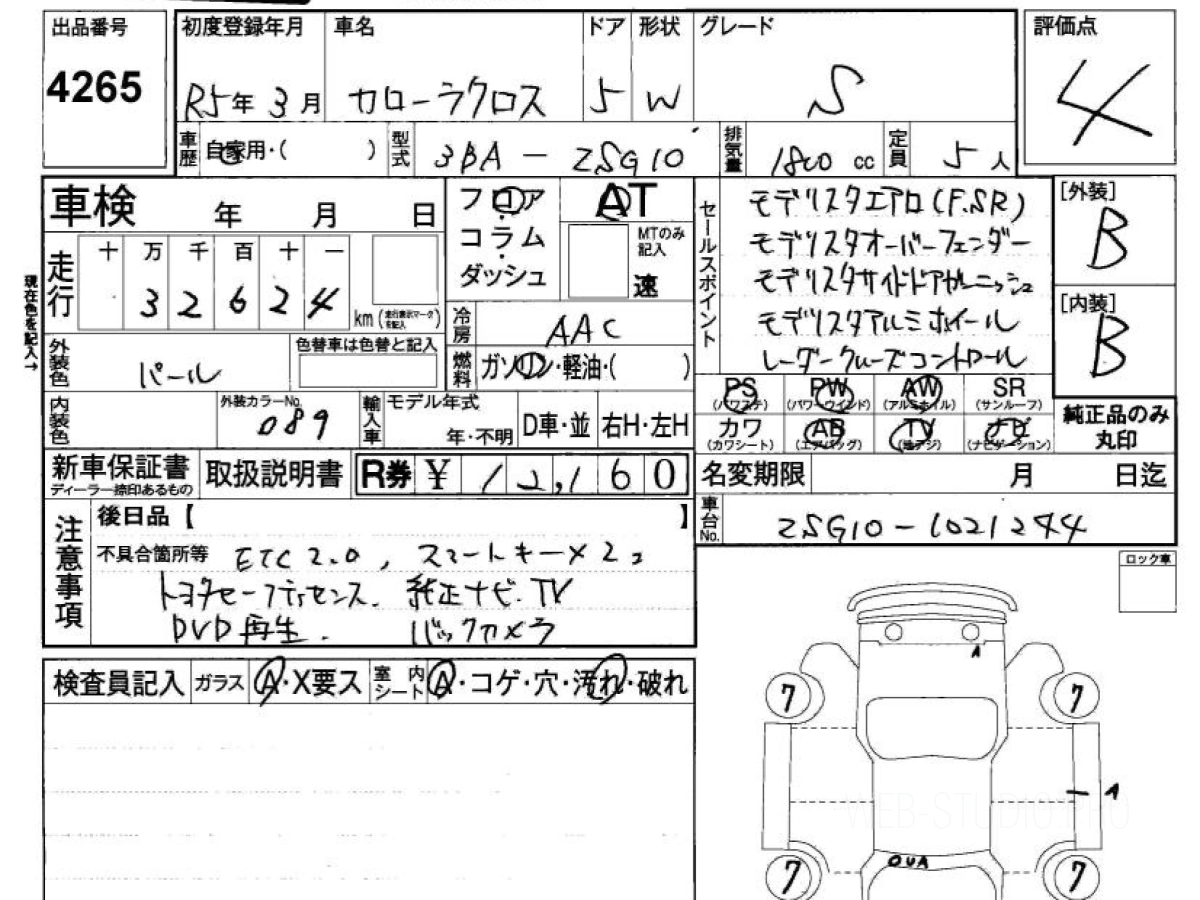 出品番号
4265
初度登録年月 車名 ドア 形状 グレード
R5年 3月 カローラクロス 5 W S
評価点
4
車歴 自家用・( ) 型式 3BA - ZSG10 排気量 1800 cc 定員 5人
車検 年 月 日
フロア
コラム
ダッシュ
AT
MTのみ記入
速
セールスポイント
モデリスタエアロ(F.S.R)
モデリスタオーバーフェンダー
モデリスタサイドドアガーニッシュ
モデリスタアルミホイール
レーダークルーズコントロール
[外装]
B
[内装]
B
純正品のみ
丸印
現在色を記入→
走行 十 万 千 百 十 一
3 2 6 2 4
km
冷房 AAC
燃料 ガソリン・軽油・( )
外装色 パール
色替車は色替と記入
内装色
外装カラーNo.
089
輸入車 モデル年式
年・不明 D車・並 右H・左H
PS PW AW SR
(パワステ) (パワーウインド) (アルミホイル) (サンルーフ)
カワ AB TV ナビ
(カワシート) (エアバッグ) (地デジ) (ナビゲーション)
新車保証書
ディーラー捺印あるもの
取扱説明書 R券 ¥ 12,160
名変期限 月 日迄
車台No. ZSG10-1021244
注意事項
後日品【 】
不具合箇所等 ETC2.0, スマートキー×2コ
トヨタセーフティセンス. 純正ナビ.TV
DVD再生. バックカメラ
ロック車
検査員記入 ガラス A・X要ス 室内シート A・コゲ・穴・汚れ・破れ
A
7 7
A
7 7
WEB-STUDIO.PRO